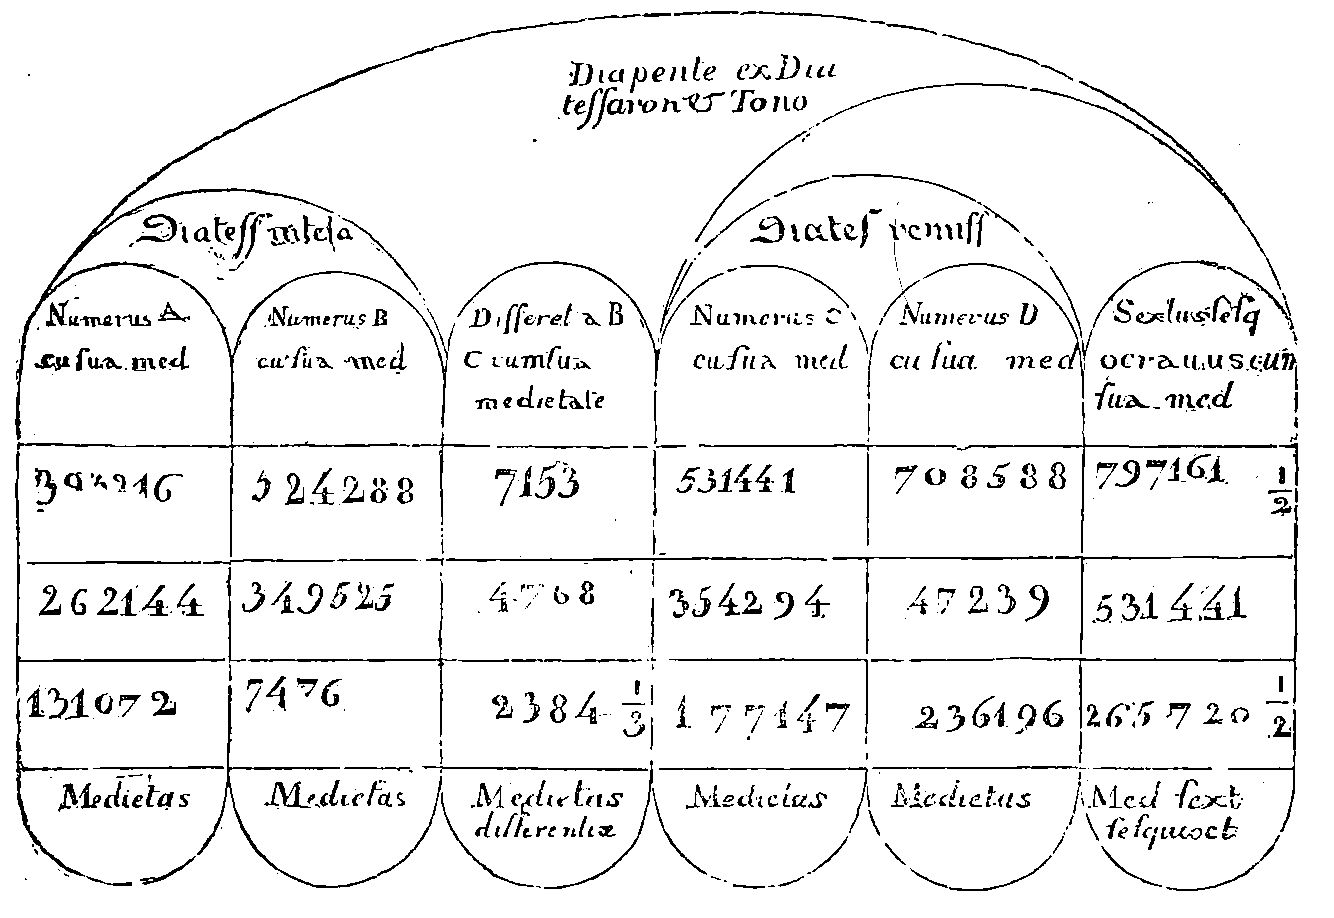 Diapente ex Dia
teſſaron & Tono
Diateſſ inteſa
Diateſ remiſſ
Numerus A
cu ſua med
Numerus B
cu ſua med
Differet a B
C cumſua
medietate
Numerus C
cu ſua med
Numerus D
cu ſua med
Sextusſeſq
ocrauus cum
ſua med
524288
7153
531441
708588
797161 1/2
262144
349525
4768
354294
47239
531441
131072
7476
2384 1/3
177147
236196
265720 1/2
Medietas
Medietas
Medietas
differentiæ
Medietas
Medietas
Med ſext
ſeſquioct